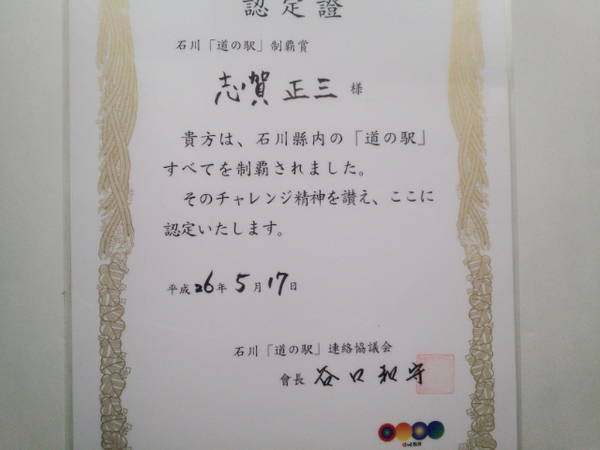 認定證
石川「道の駅」制覇賞
志賀 正三 様
貴方は、石川縣内の「道の駅」
すべてを制覇されました。
そのチャレンジ精神を讃え、ここに
認定いたします。
平成26年5月17日
石川「道の駅」連絡協議会
會長 谷口和守